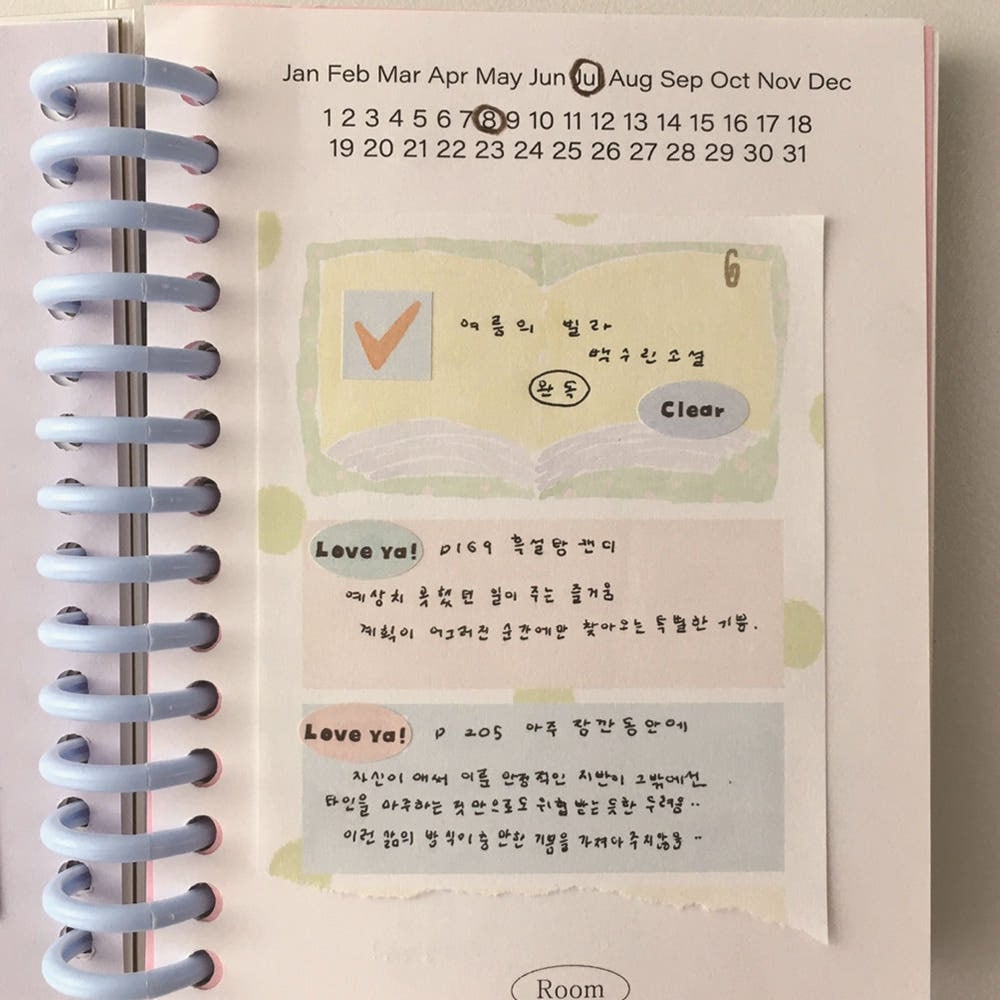 Jan Feb Mar Apr May Jun Jul Aug Sep Oct Nov Dec
1 2 3 4 5 6 7 8 9 10 11 12 13 14 15 16 17 18
19 20 21 22 23 24 25 26 27 28 29 30 31
6
여름의 빌라
백수린 소설
완독
Clear
Love Ya! p169 흑설탕 캔디
예상치 못했던 일이 주는 즐거움
계획이 어그러진 순간에만 찾아오는 특별한 기쁨.
Love Ya! p 205 아주 잠깐 동안에
자신이 애써 이룬 안정적인 지반이 그밖에선
타인을 마주하는 것 만으로도 위협 받는 듯한 두려움..
이런 삶의 방식이 충만한 기쁨을 가져다 주지않음..
Room